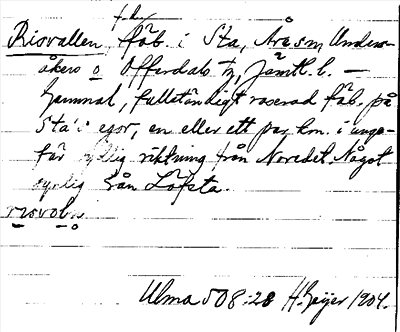 f.d.
Risvallen, fäb. i Sta, Åre sn, Unders-
åkers o Offerdals tg, Jämtl. l. —
Gammal, fullständigt raserad fäb. på
Sta's egor, en eller ett par km. i unge-
fär sydlig riktning från Noredet. Något
synlig från Löfsta.
Ulma 508:28 H. Geijer 1904.